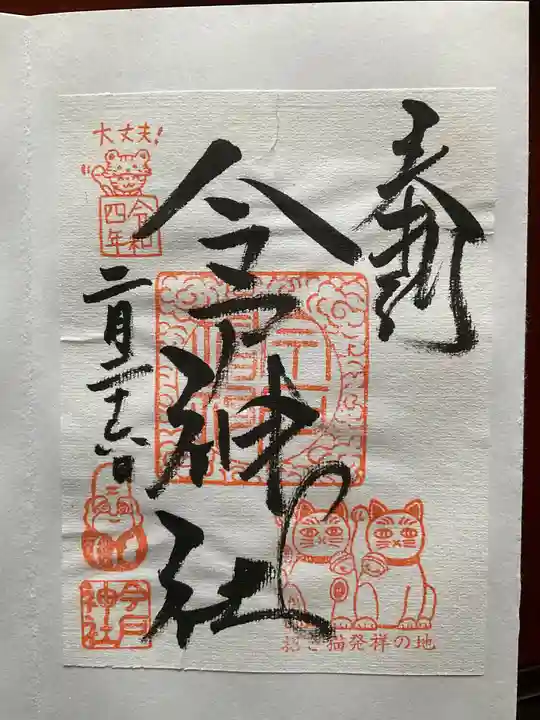 奉拝
今戸神社
大丈夫!
令和
四年
二月二十六日
今戸
神社
招き猫発祥の地